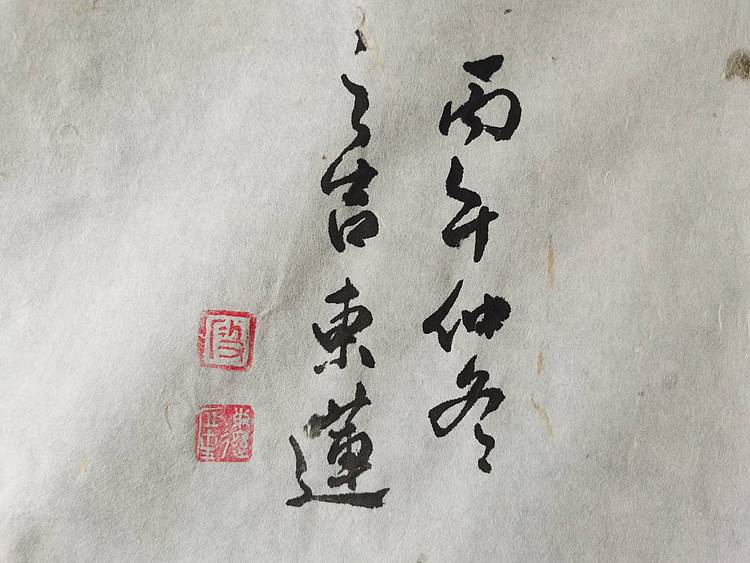 丙午仲冬
之吉東蓮